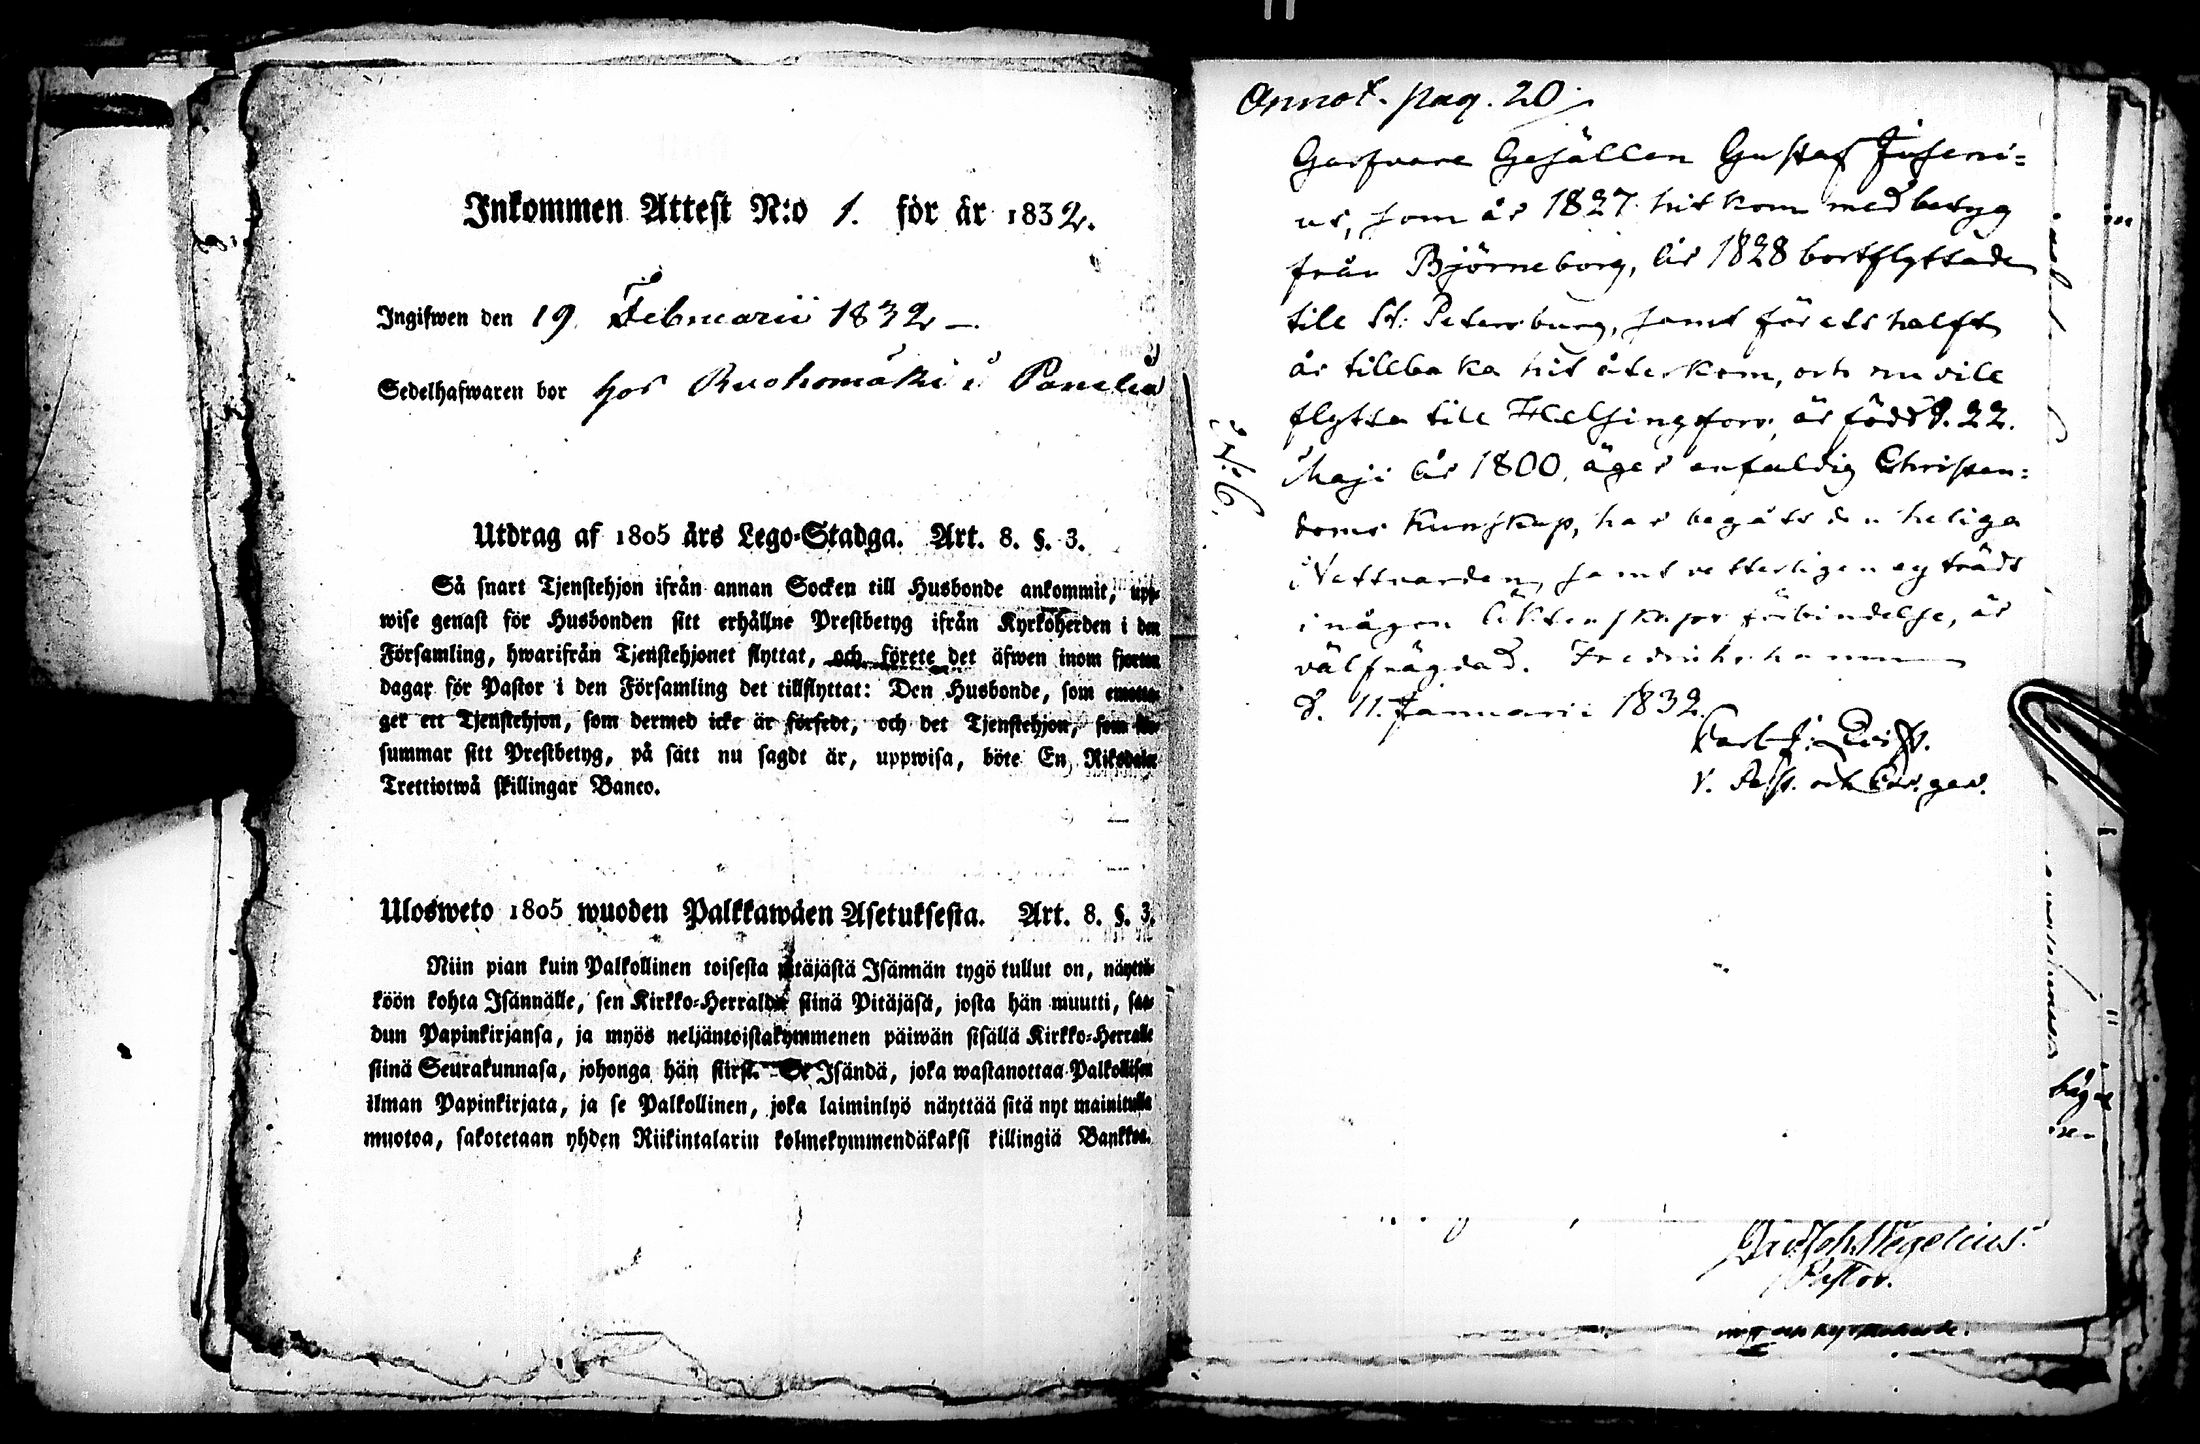 Inkommen Attest N:o 1. för år 1832.
Ingifwen den 19. Februarii 1832 —.
Sedelhafwaren bor hos Ruohomäki i Panelia
Utdrag af 1805 års Lego-Stadga. Art. 8. §. 3.
Så snart Tjenstehjon ifrån annan Socken till Husbonde ankommit, upp-
wise genast för Husbonden sitt erhållne Prestbetyg ifrån Kyrkoherden i den
Församling, hwarifrån Tjenstehjonet flyttat, och förete det äfwen inom fjorton
dagar för Pastor i den Församling det tillflyttat: Den Husbonde, som emotta-
ger ett Tjenstehjon, som dermed icke är försedt, och det Tjenstehjon, som för-
summar sitt Prestbetyg, på sätt nu sagdt är, uppwisa, böte En Riksdaler
Trettiotwå skillingar Banco.
Ulosweto 1805 wuoden Palkkawäen Asetuksesta. Art. 8. §. 3.
Niin pian kuin Palkollinen toisesta pitäjästä Isännän tygö tullut on, näyttä-
köön kohta Isännälle, sen Kirkko-Herralda siinä Pitäjäsä, josta hän muutti, saa-
dun Papinkirjansa, ja myös neljäntoistakymmenen päiwän sisällä Kirkko-Herralle
siinä Seurakunnasa, johonga hän siirsi. Se Isändä, joka wastanottaa Palkollisen
ilman Papinkirjata, ja se Palkollinen, joka laiminlyö näyttää sitä nyt mainitulla
muotoa, sakotetaan yhden Riikintalarin kolmekymmendäkaksi killingiä Bankkoa.
Annot. pag. 20.
Garfvare Gesällen Gustaf Juseni=
us, som år 1827 hit kom med betyg
från Björneborg, år 1828 bortflyttade
till St: Petersburg, samt för ett halft
år tillbaka hit återkom, och nu vill
flytta till Helsingfors, är född d. 22.
Maji år 1800, äger enfaldig Christen=
doms Kunskap, har begått den heliga
Nattvarden, samt vetterligen ej trädt
i någon Äktenskaps förbindelse, är
välfrägdad. Fredrikshamn
d. 11. Januarii 1832.
V. Past. och
N:6.
Wegelius.
Pastor.